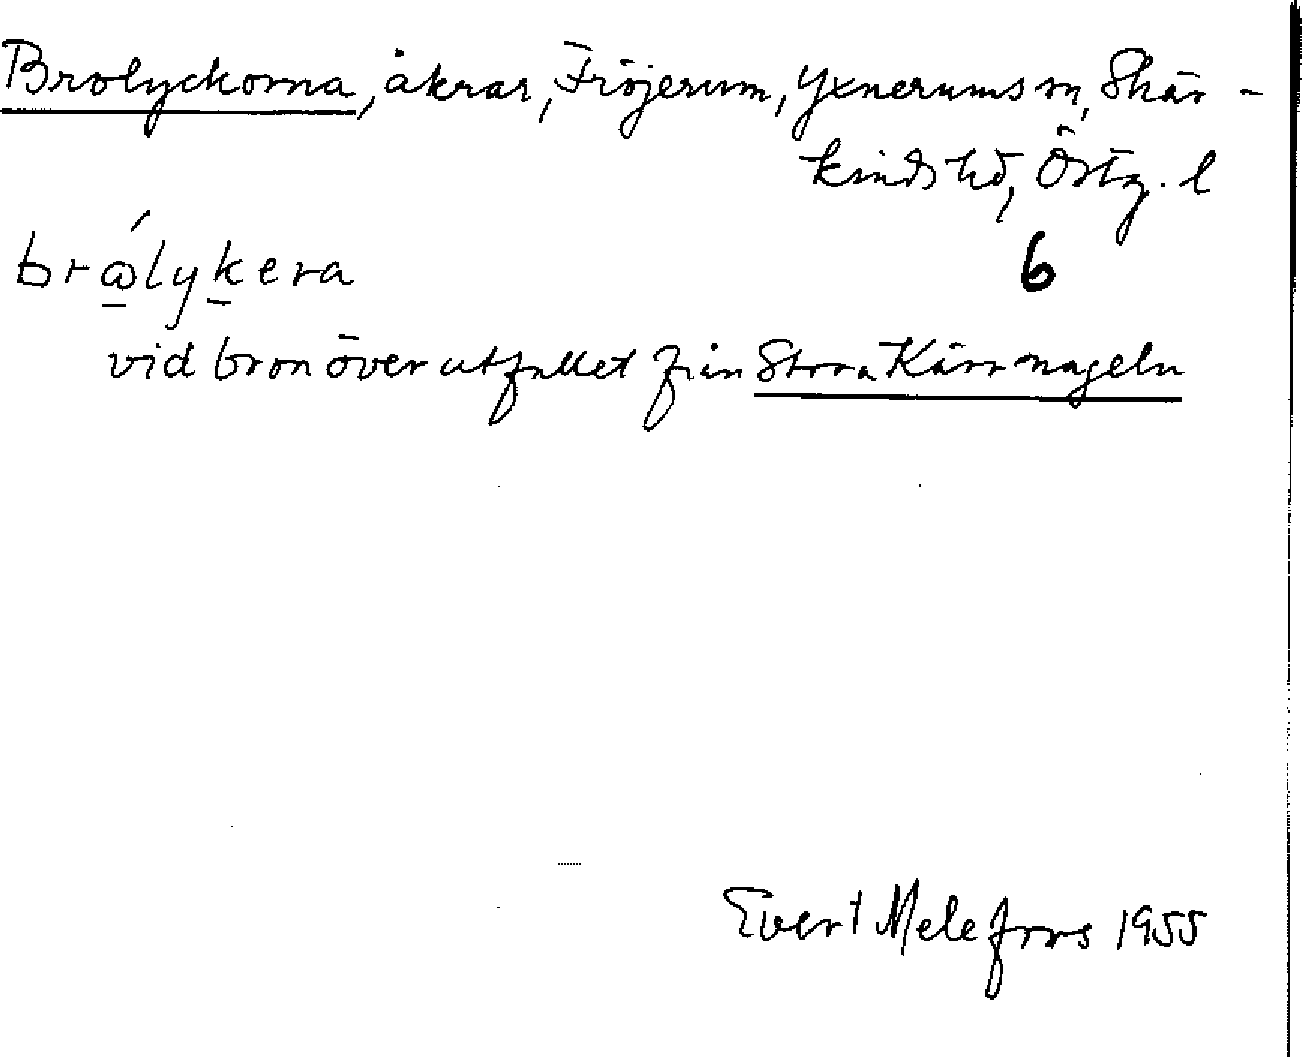 Brolyckorna, åkrar, Fröjerum, Yxnerums sn, Skär-
kinds hd, Östg. l
brólykera
6
vid bron över utfallet från Stora Kärrnageln
Evert Melefors 1955